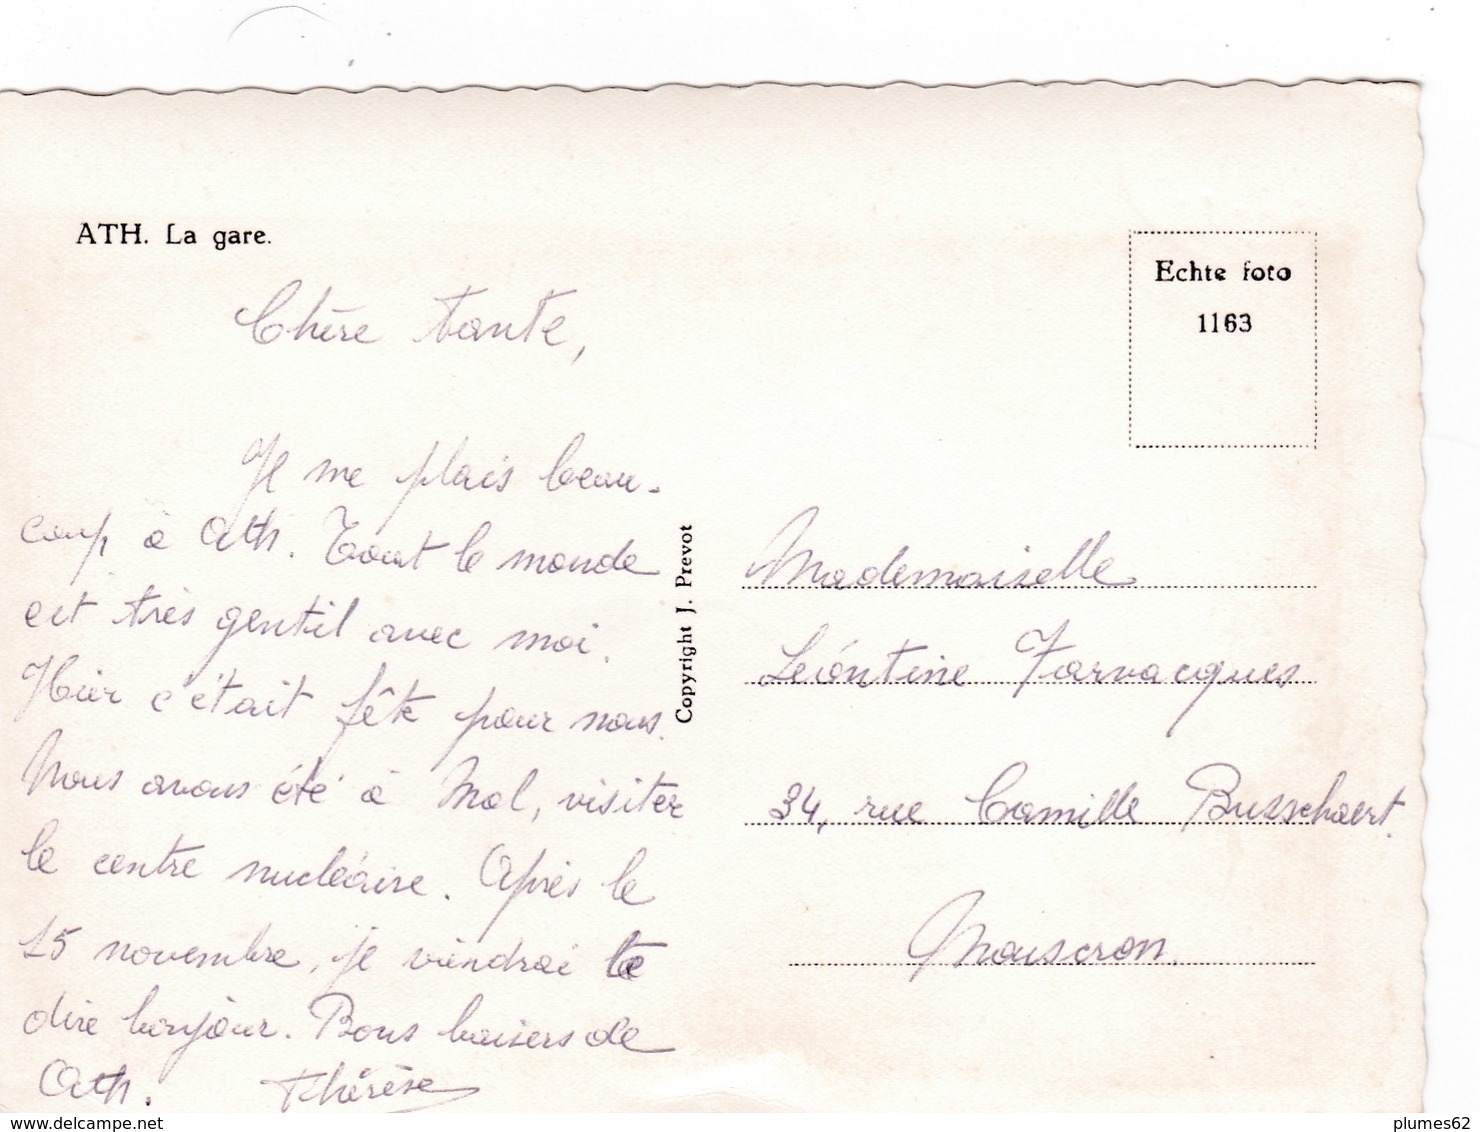 ATH. La gare.
Chère tante,
Je me plais beau-
coup à Ath. Tout le monde
est très gentil avec moi.
Hier c'était fête pour nous.
Nous avons été à Mol, visiter
le centre nucléaire. Après le
15 novembre, je viendrai te
dire bonjour. Bons baisers de
Ath. Thérèse
Copyright J. Prevot
Echte foto
1163
Mademoiselle
Léontine Farvacques
34, rue Camille Busschaert.
Mouscron.
delcampe.net
plumes62